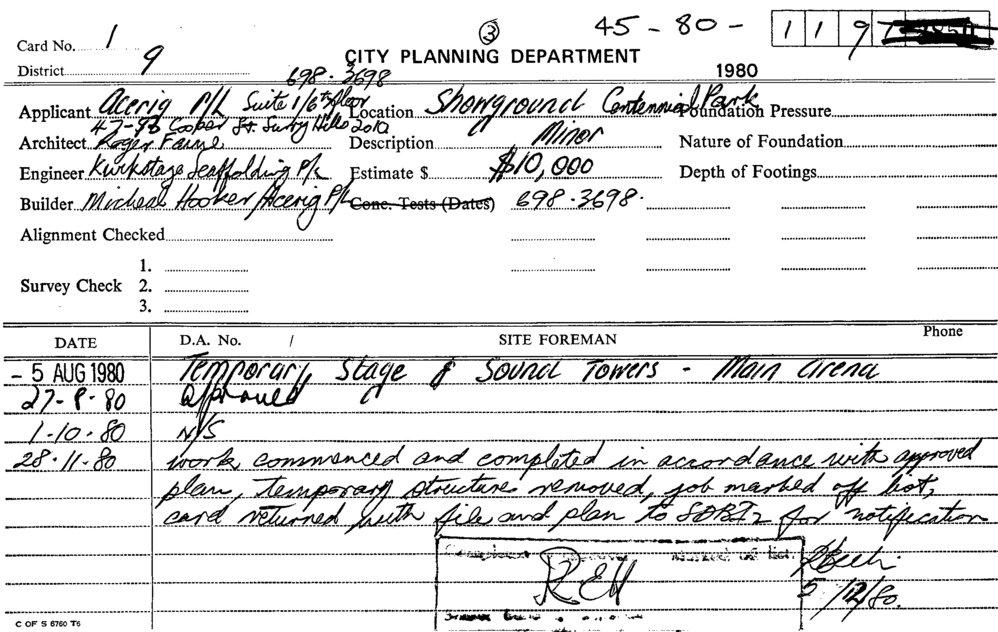 3
45 - 80 - 119
Card No. 1
CITY PLANNING DEPARTMENT
District 9
698.3698
1980
Applicant Acerig P/L Suite 1/6th floor Location Showground Centennial Park Foundation Pressure
Cooper St. Surry Hills 2010
Architect Roger Description Minor Nature of Foundation
Engineer Kwikstage Scaffolding P/L Estimate $ $10,000 Depth of Footings
Builder Micheal Hooker/Acerig P/L Conc. Tests (Dates) 698.3698.
Alignment Checked
1.
Survey Check 2.
3.
DATE D.A. No. / SITE FOREMAN Phone
- 5 AUG 1980 Temporary Stage & Sound Towers - Main Arena
27-8-80 Approved
1-10-80 N/S
28.11.80 work commenced and completed in accordance with approved
plan, temporary structures removed, job marked off list,
card returned with file and plan to for notification
marked off list.
REH
5/12/80.
C OF S 6760 T6